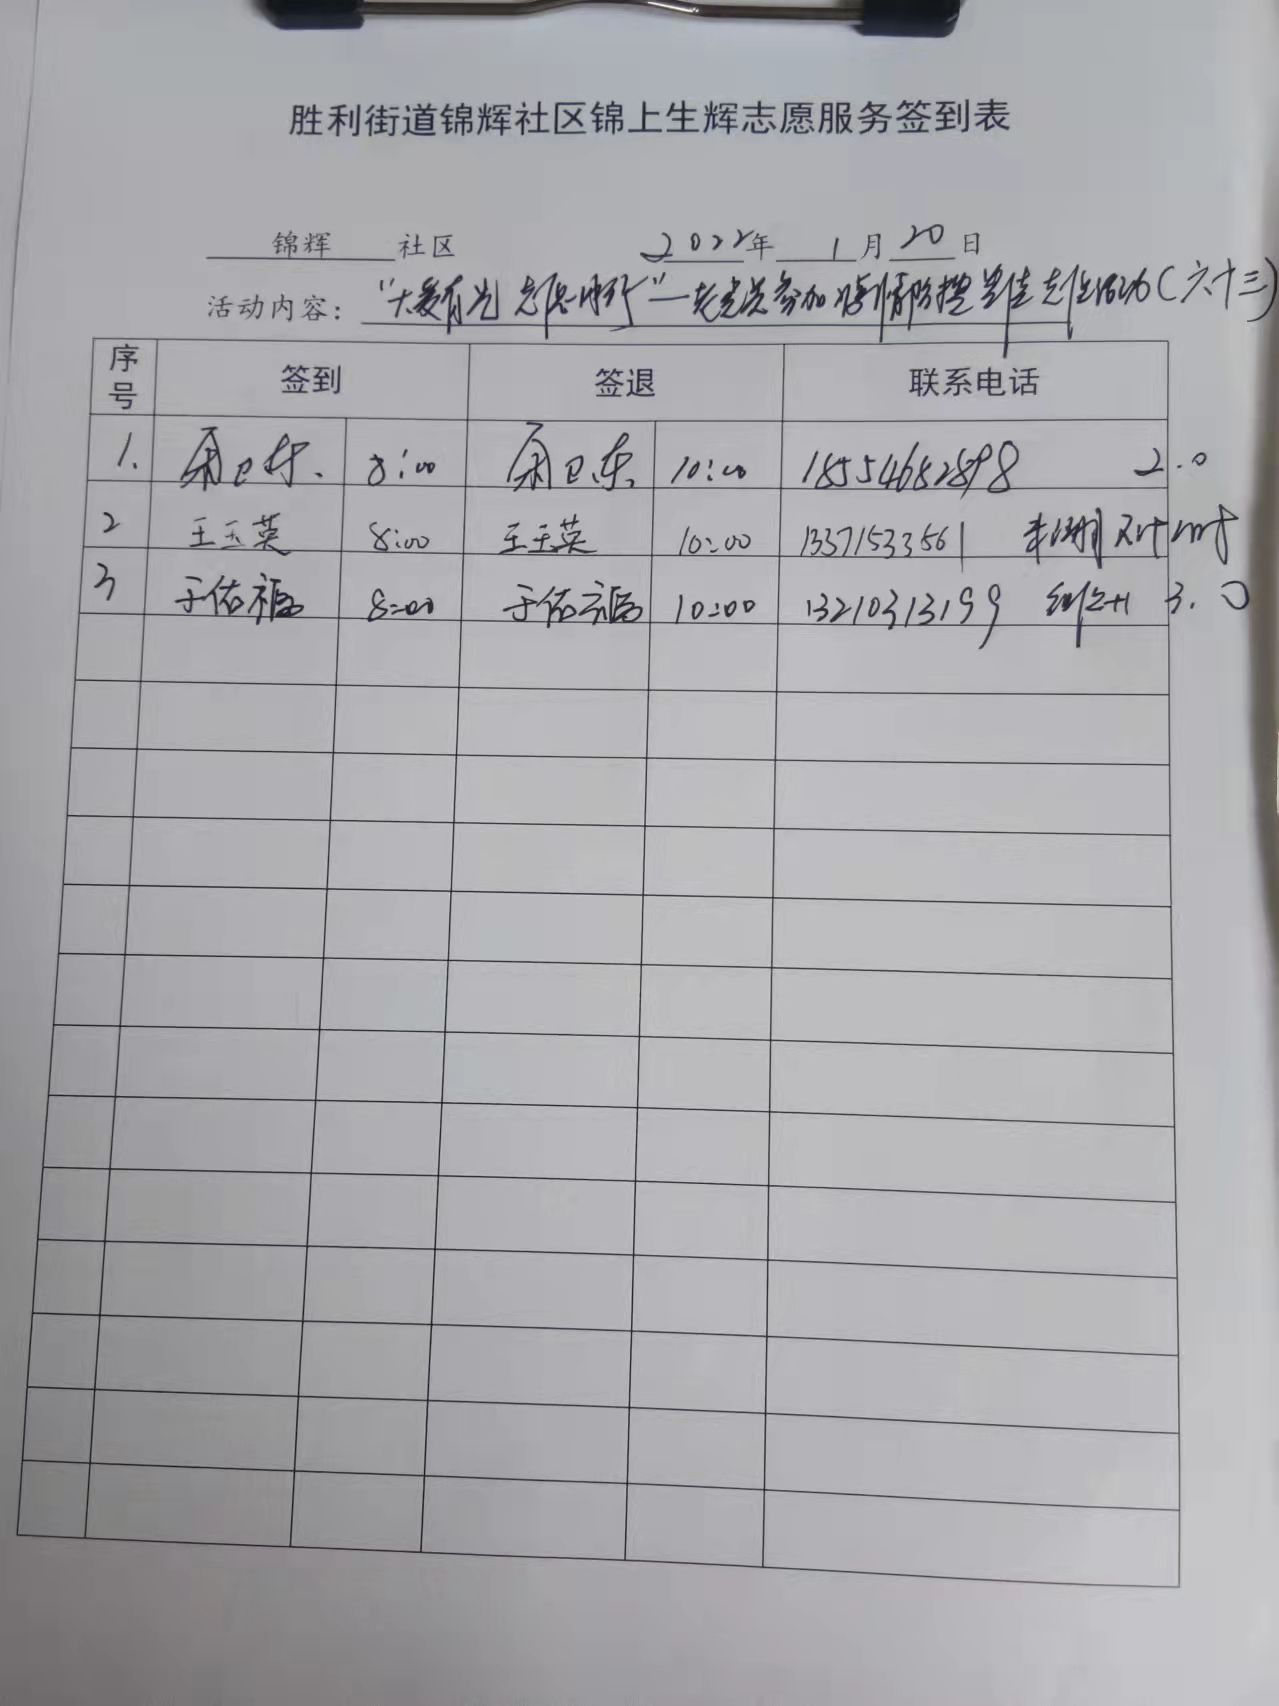 胜利街道锦辉社区锦上生辉志愿服务签到表
锦辉 社区 2022年 1月20日
活动内容：“大爱有光 志愿同行”—老党员参加疫情防控 志愿活动(六十三)
序号 签到 签退 联系电话
1. 卫东. 8:00 卫东. 10:00 18554682898 2.0
2 王玉英 8:00 王玉英 10:00 13371533561
3 于佑福 8:00 于佑福 10:00 13210313199 3.0